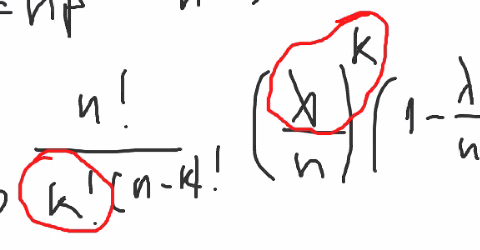 = np
n! / k!(n-k)! (λ/n)^k (1 - λ/n